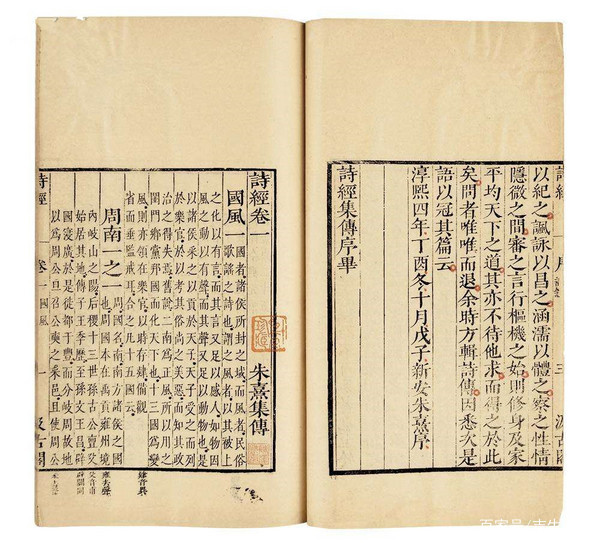 詩經
三
汲古閣
以紀之諷詠以昌之涵濡以體之察之性情
隱微之間審之言行樞機之始則修身及家
平均天下之道其亦不待他求而得之於此
矣問者唯唯而退余時方輯詩傳因悉次是
語以冠其篇云
淳熙四年丁酉冬十月戊子新安朱熹序
詩經集傳序畢
詩經卷一 朱熹集傳
國風一
國者諸侯所封之域而風者民俗
歌謠之詩也謂之風者以其被上
之化以有言而其言又足以感人如物因
風之動以有聲而其聲又足以動物也是
以諸侯采之以貢於天子天子受之而列
於樂官於以考其俗尚之美惡而知其政
治之得失焉舊說二南為正風所以用之
閨門鄉黨邦國而化天下也十三國為變
風則亦領在樂官以時存肄備觀
省而垂監戒耳合之凡十五國云
肄音異
周南一之一
周國名南南方諸侯之國
也周國本在禹貢雍州境
內岐山之陽后稷十三世孫古公亶父
始居其地傳子王季歷至孫文王昌辟
國寖廣於是徙都于豐而分岐周故地
以為周公旦召公奭之采邑且使周公
雍去聲
父音甫
辟闢同
詩經 卷一 國風
一
汲古閣
百家号